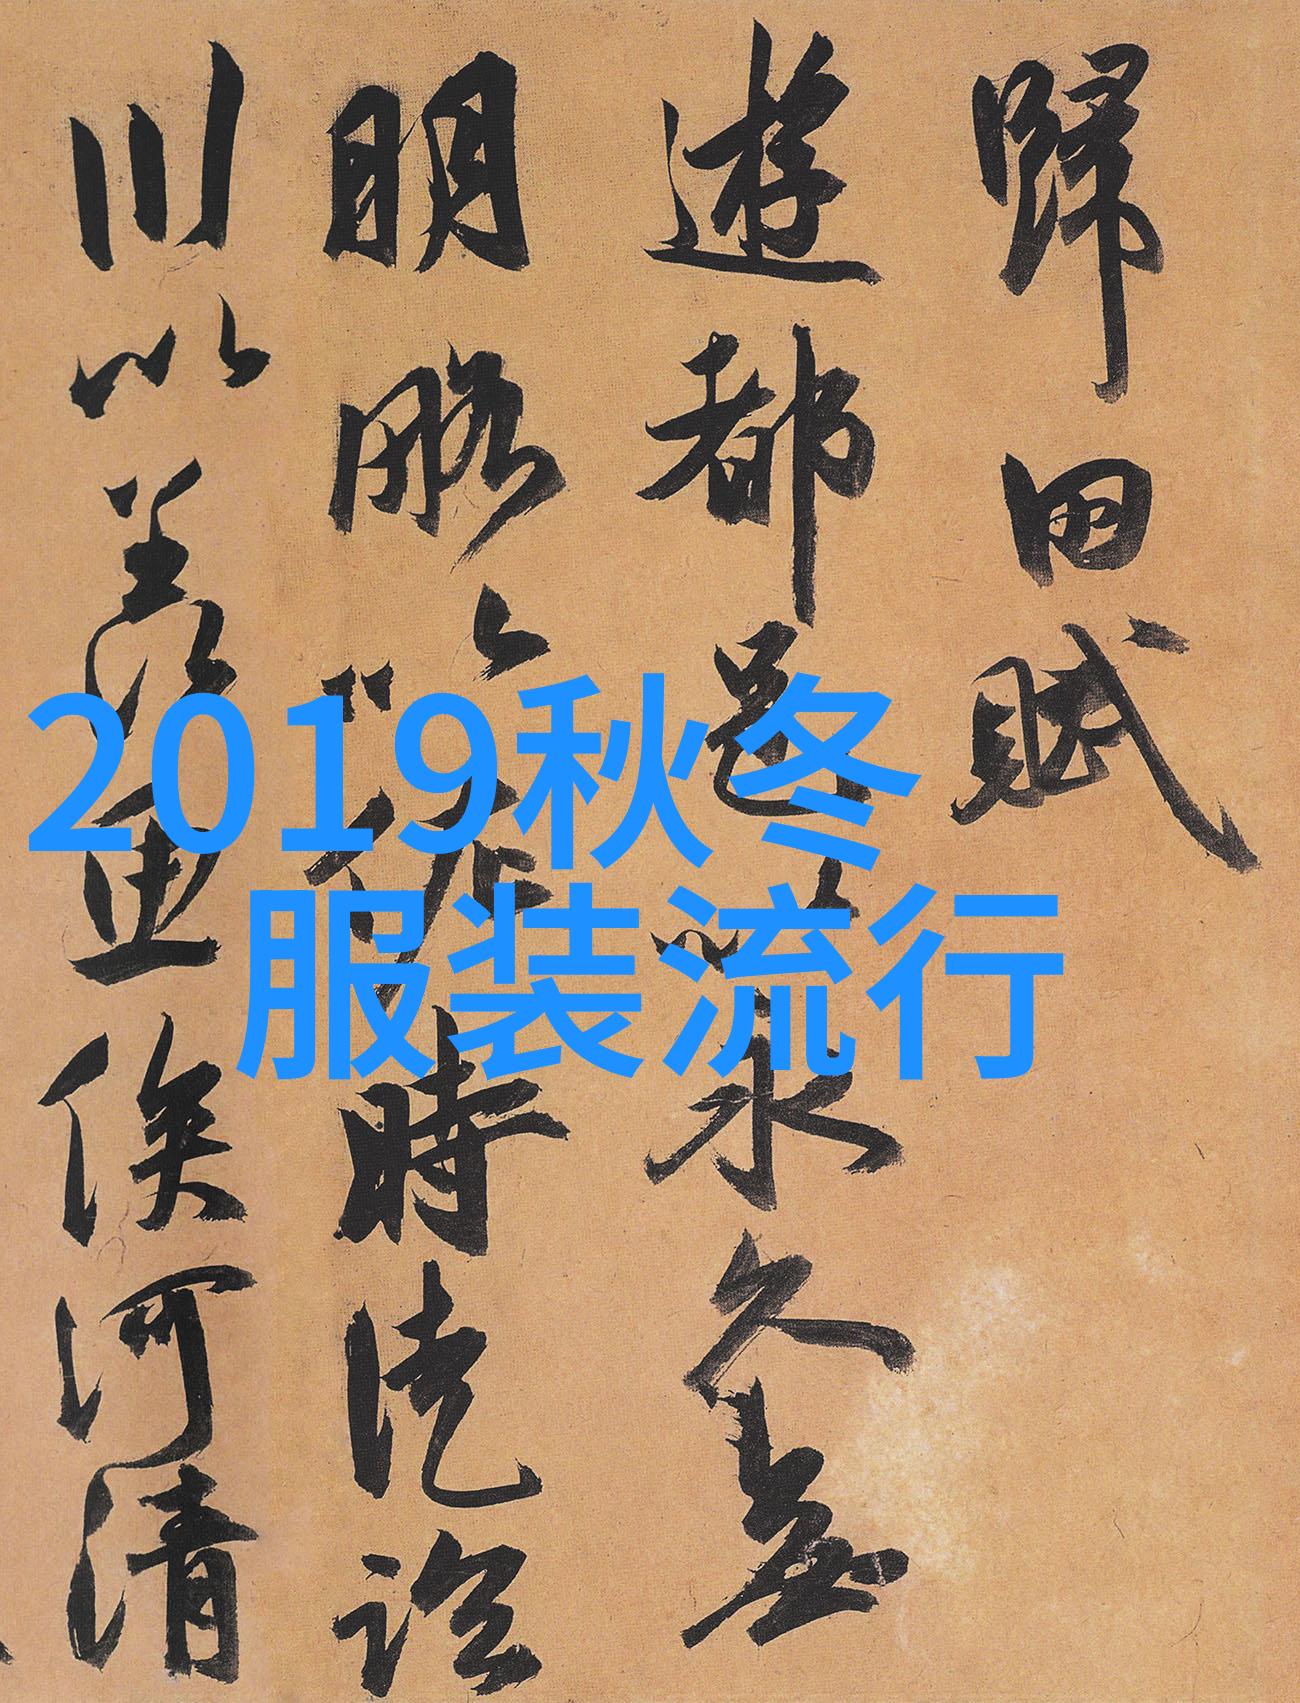 歸田賦
遊都邑以永久無
明略以佐時徒臨
川以羡魚俟河清
2019秋冬
服装流行